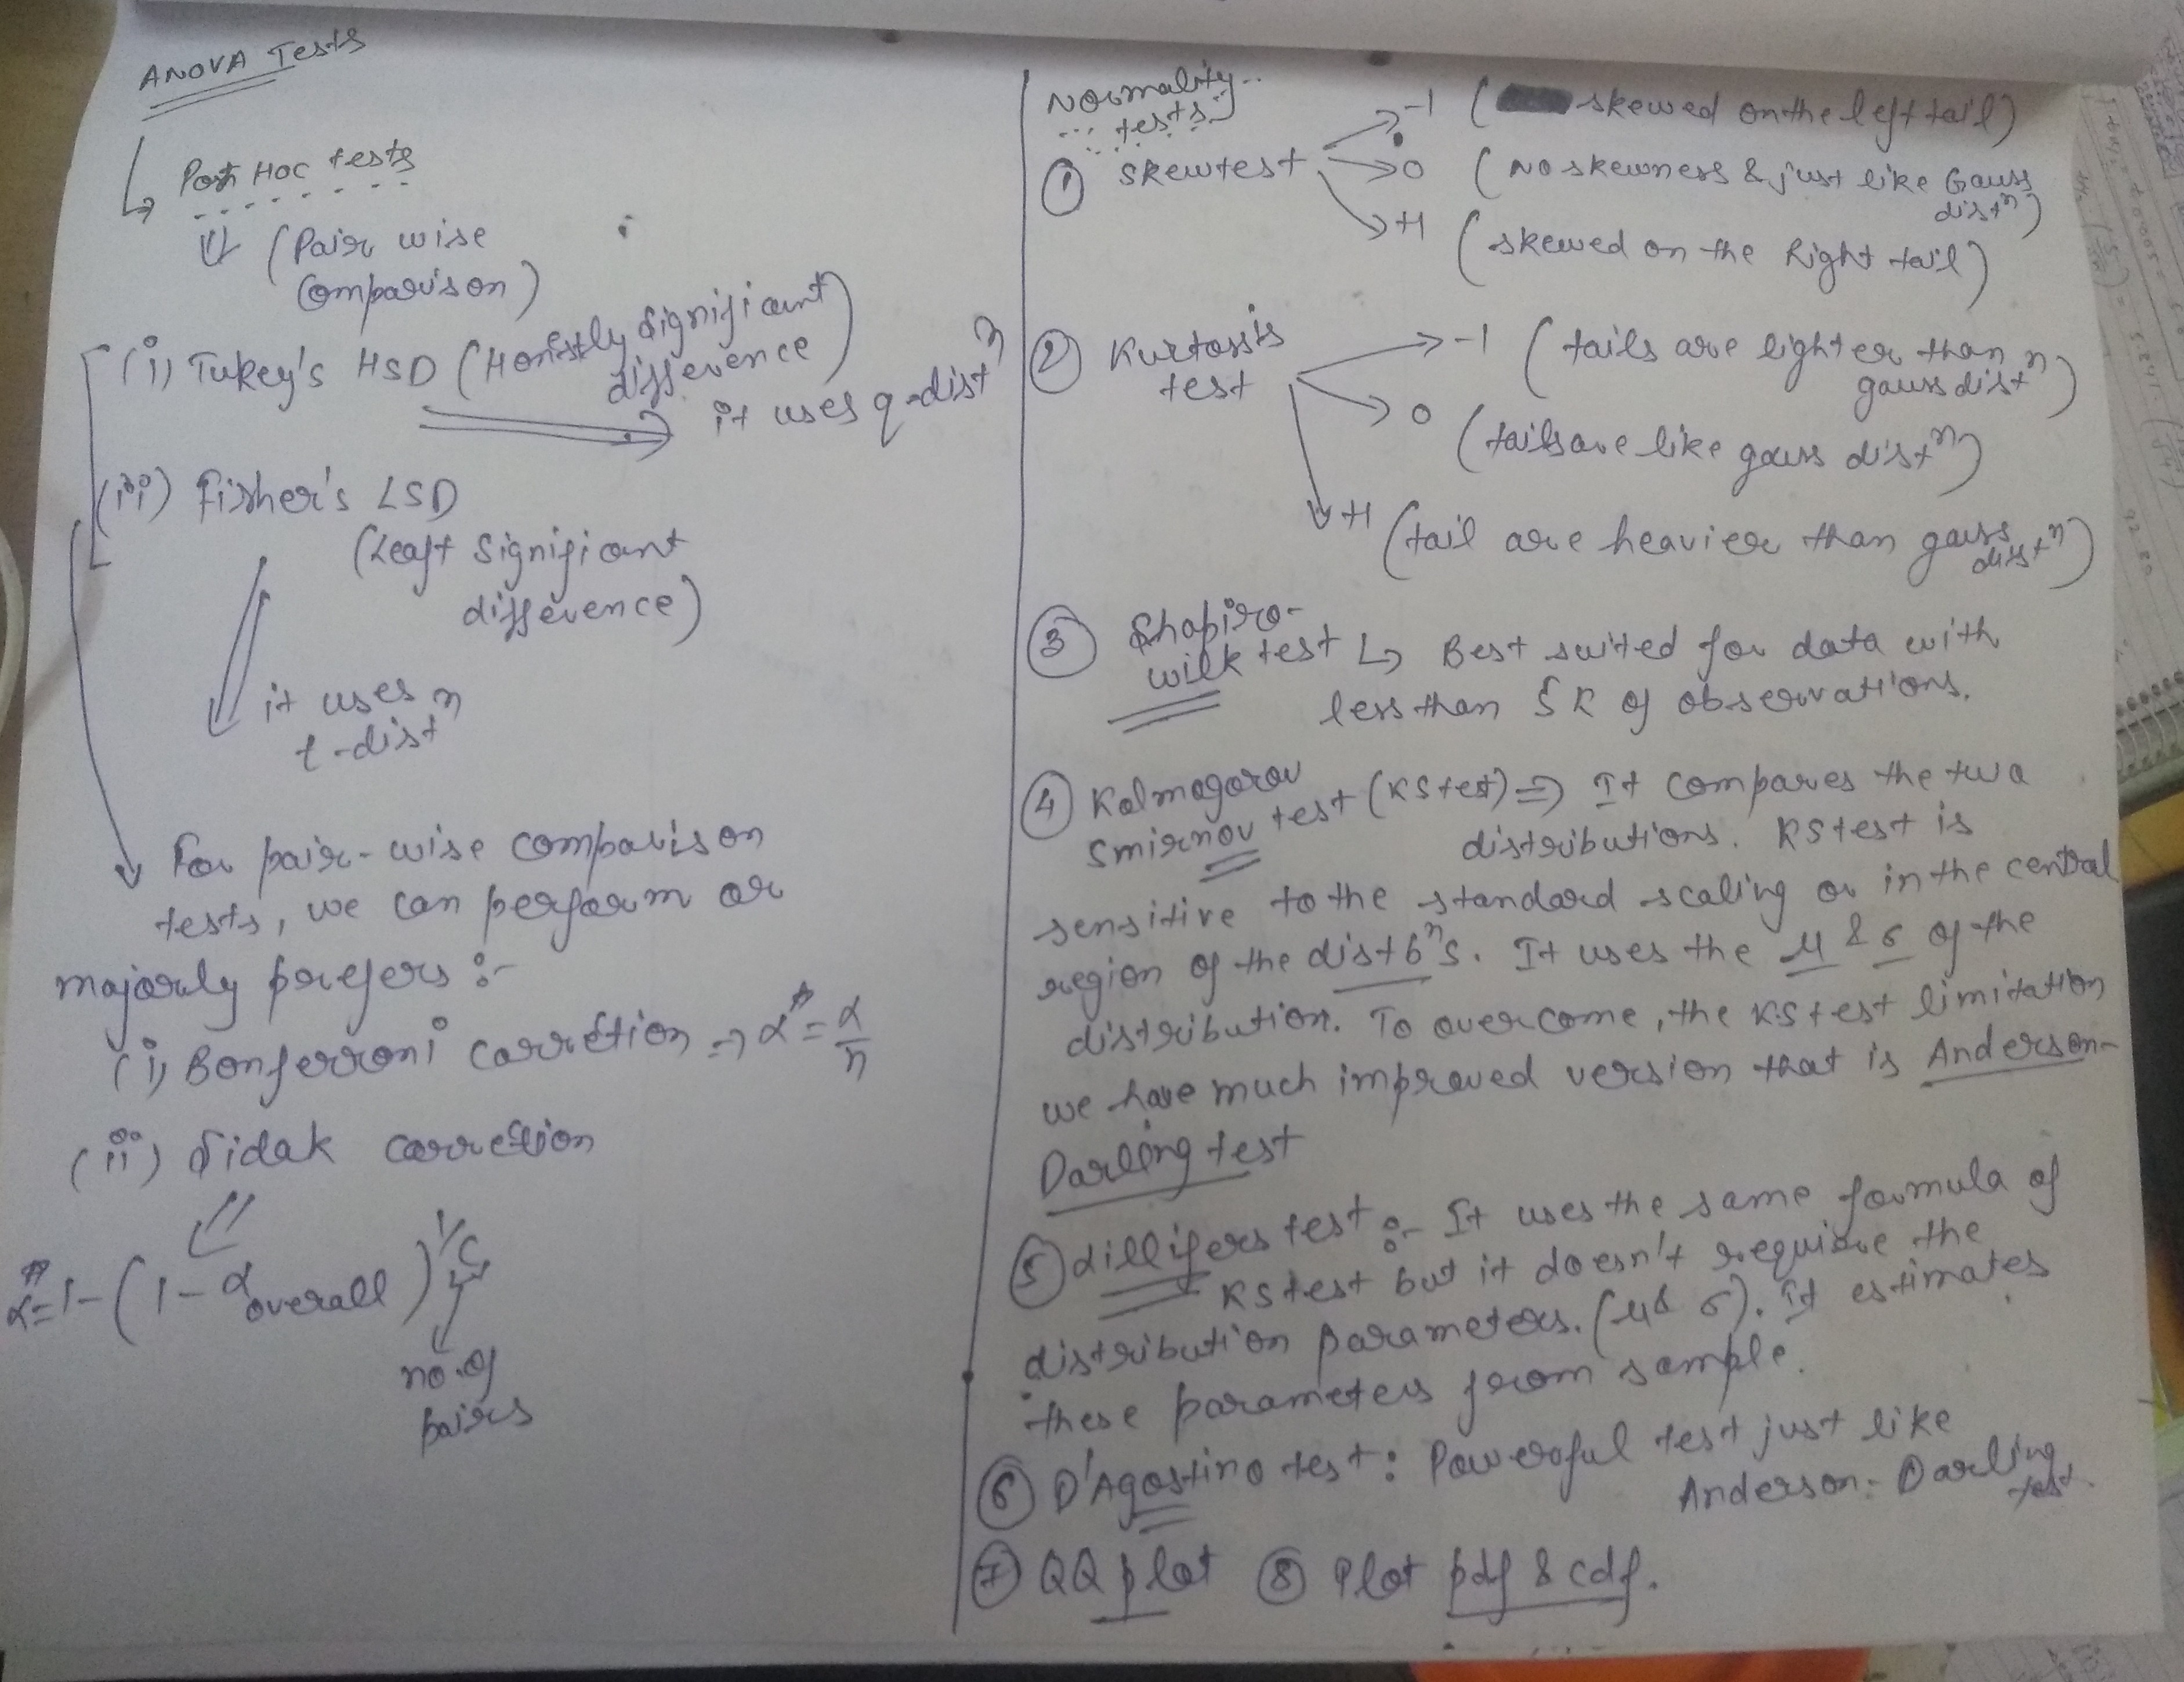 ANOVA Tests
Post Hoc tests
(Pair wise
Comparison)
(i) Tukey's HSD (Honestly Significant
difference)
it uses q-distⁿ
(ii) Fisher's LSD
(Least Significant
difference)
it uses
t-distⁿ
For pair-wise comparison
tests, we can perform or
majorly prefers :-
(i) Bonferroni correction ⇒ α* = α/n
(ii) Sidak correction
α* = 1-(1-α overall)^1/C
no. of
pairs
Normality
tests
① Skewtest → -1 (skewed on the left tail)
→ 0 (No skewness & just like Gauss
distⁿ)
→ +1 (skewed on the Right tail)
② Kurtosis
test
→ -1 (tails are lighter than
gauss distⁿ)
→ 0 (tails are like gauss distⁿ)
→ +1 (tail are heavier than gauss
distⁿ)
③ Shapiro-
wilk test ↳ Best suited for data with
less than 5K of observations.
④ Kolmogorov
Smirnov test (KS test) ⇒ It compares the two
distributions. KS test is
sensitive to the standard scaling or in the central
region of the distbⁿs. It uses the μ & σ of the
distribution. To overcome, the KS test limitation
we have much improved version that is Anderson-
Darling test
⑤ Lillifers test :- It uses the same formula of
KS test but it doesn't require the
distribution parameters. (μ & σ). It estimates
these parameters from sample.
⑥ D'Agostino test : Powerful test just like
Anderson-Darling
test.
⑦ QQ plot ⑧ Plot pdf & cdf.